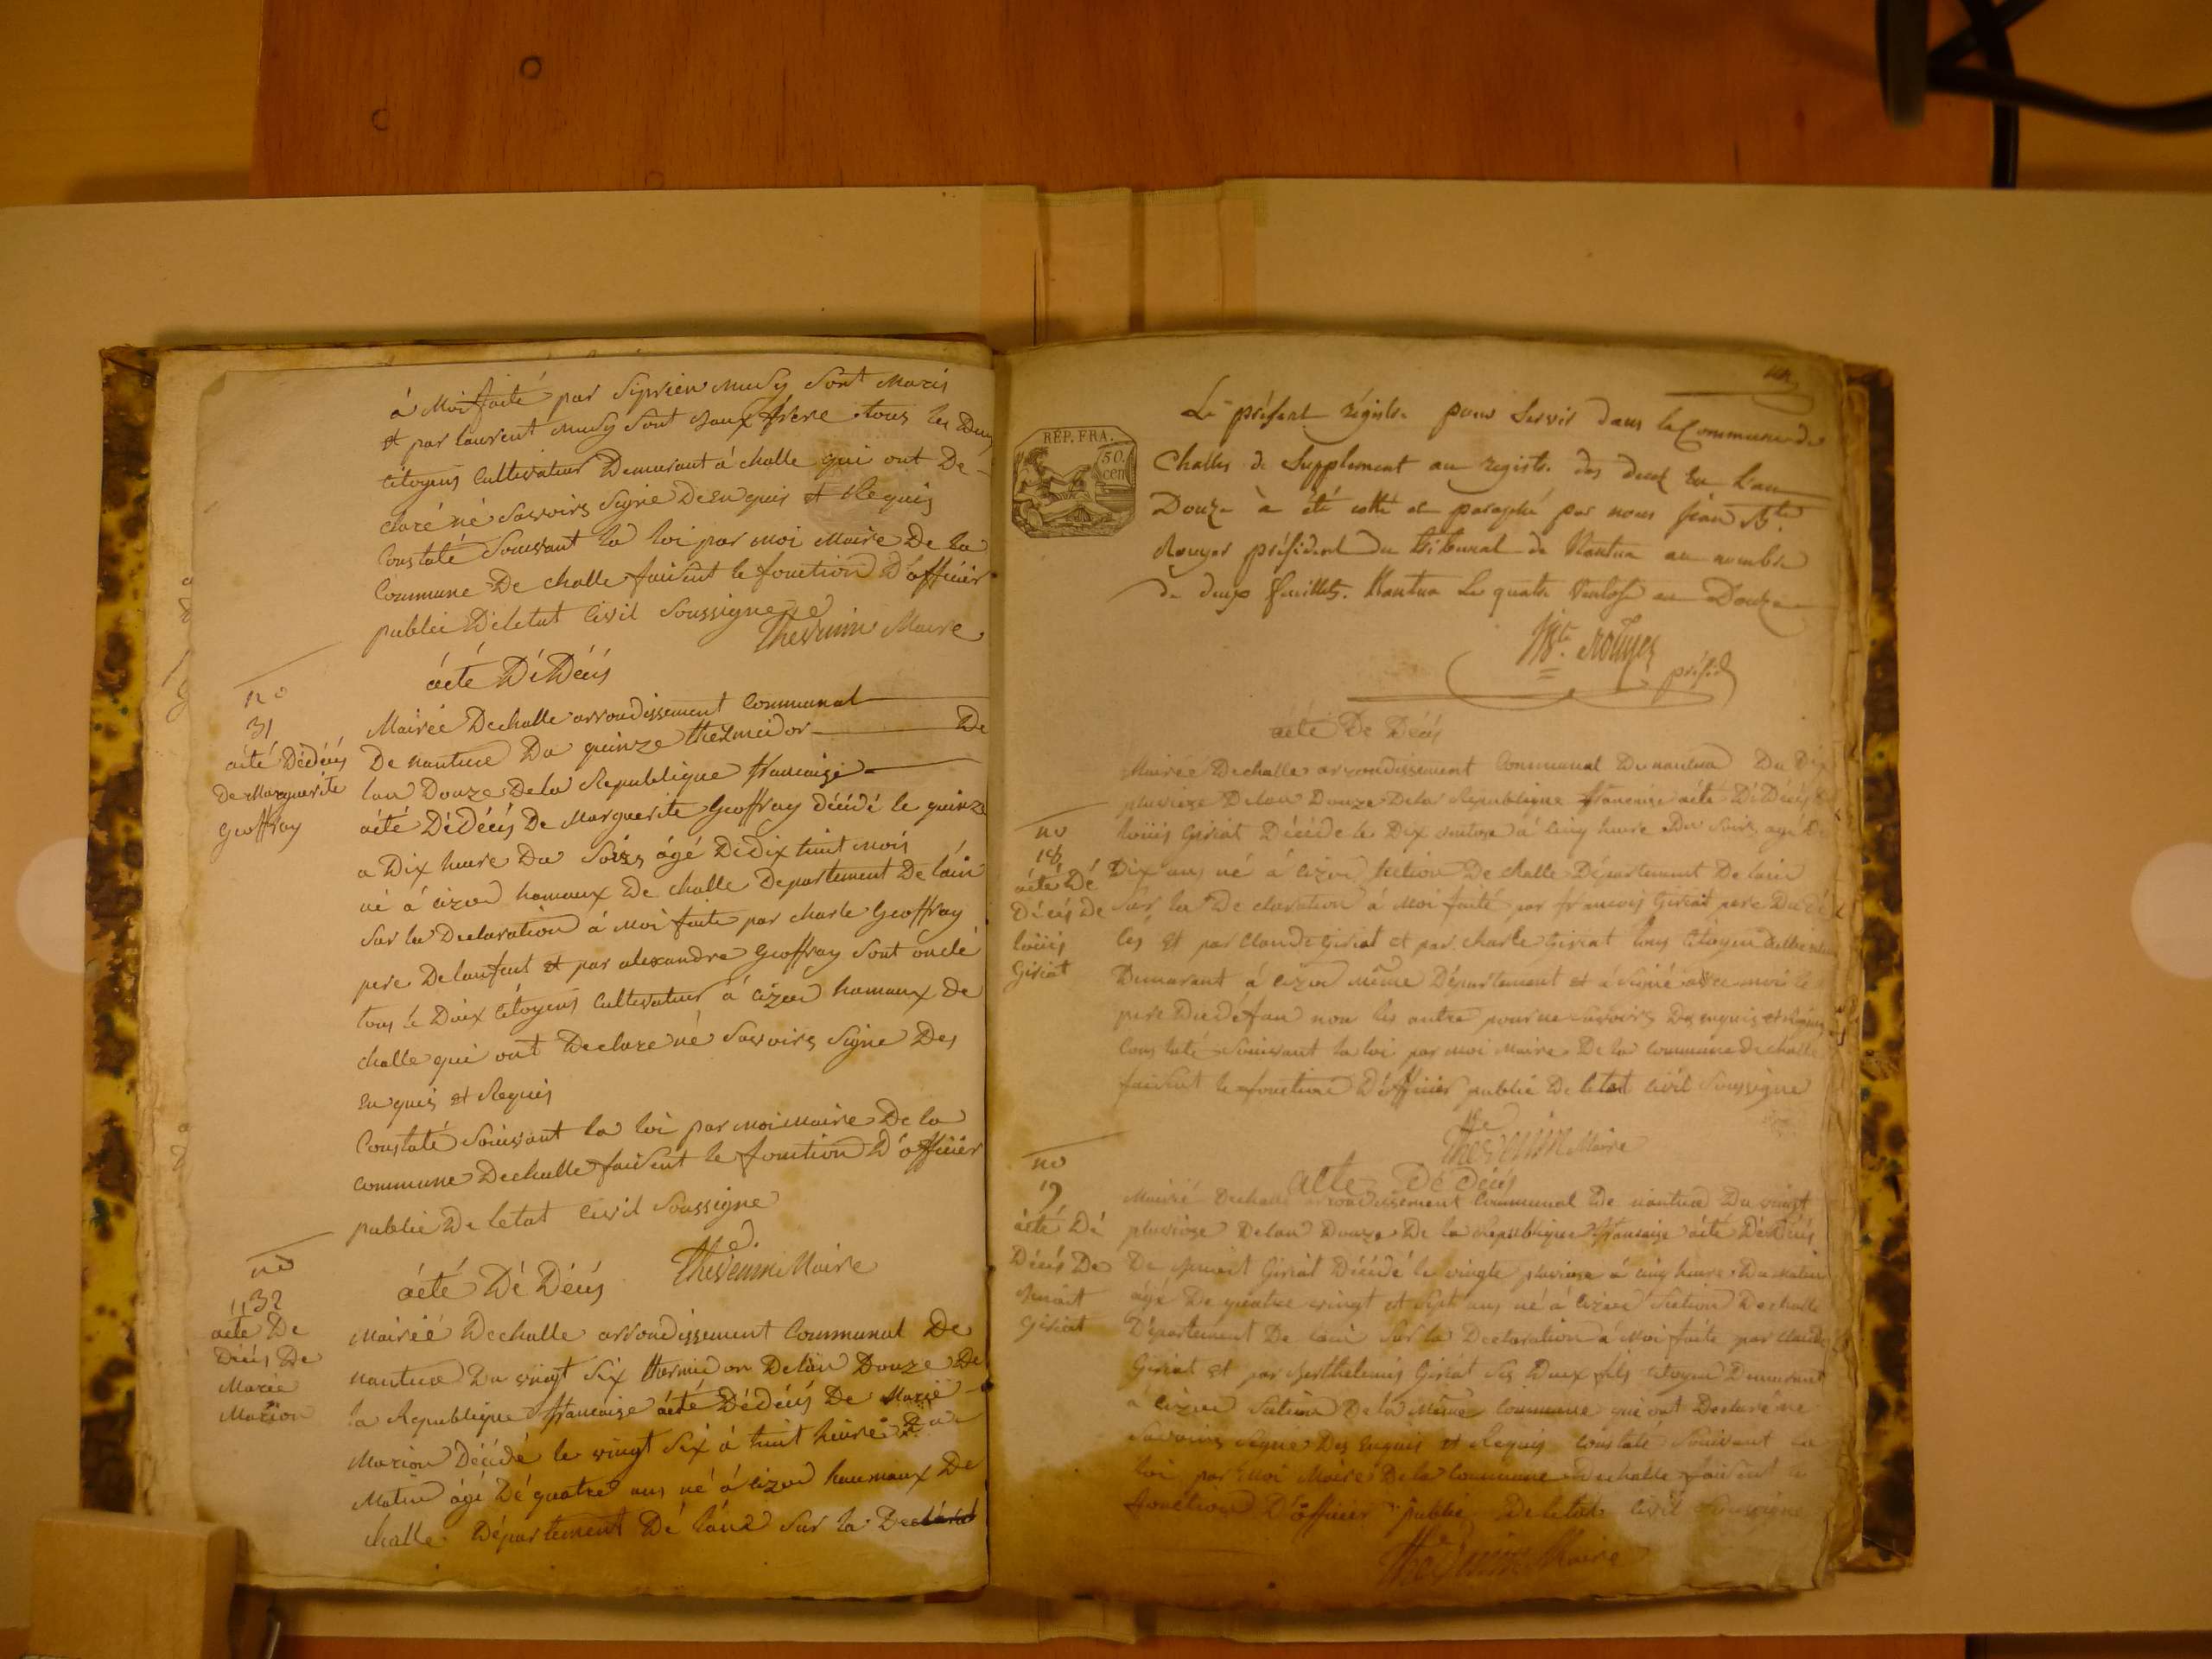 á Moi faité par Siprien Musy Sont Maris
et par laurent Musy Sont Baux frère tous les Deux
Citoyens Cultivateur Demurant á challe qui ont De-
claré né Savoirs Signé De Enquis et Requis
Constaté Souivant la loi par moi Maire De la
Commune De challe faisent le fonction D'officier
publié Dé létat Civil Soussigne
Thevenin Maire
áété Dé Déçés
no
31
áété Dédéçés
De Marguerite
Geoffray
Mairée De challe arrondissement Communal
De nantua Du quinze thermidor De
lan Douze De la Republique francaise
áété Dédéçés De Marguerite Geoffray Décédé le quinze
a Dix heure Du Soirs ágé De Dix huit mois
né á Cizod hamaux De challe Departement De láin
Sur la Declaration á Moi faite par charle Geoffray
pere De lanfent et par alexandre Geoffray Sont onclé
tous lé Duix Citoyens Cultivateur á Cizod hamaux De
challe qui ont Declare né Savoirs Signe Des
Enquis et Requis
Constaté Souivant la loi par moi Maire De la
Commune De challe faisent le fonction D'officier
publié De letat Civil Soussigne
Thevenin Maire
no
32
áété De
Déçés De
Marie
Marion
áété Dé Déçés
Mairié De challe arrondissement Communal De
nantua Du vingt Six thermidor De lan Douze De
la Republique francaise áété Dédéçés De Marie
Marion Décédé le vingt Six á huit heure Du
Matin ágé Dé quatre ans né á Cizod haumaux De
challe Département Dé láin Sur la Declarat
Le présent régistre pour Servir dans la Commune de
Challes de Supplement au registre des decès en l'an
Douze à été cotté et paraphé par nous jean Bte
Rouyer président du tribunal de Nantua au nombre
de deux feuillets. Nantua le quatre Ventose an Douze
Bte Rouyer
présid
RÉP. FRA.
50.
cen
áété De Déçés
Mairée De challe arrondissement Communal De nantua Du Dix
pluviose De lan Douze De la Republique francaise áété De Déçés De
louis Giriat Décéde le Dix á Cinq heure Du Soirs agé De
Dix ans né á Cizod Section De challe Département De láin
Sur la Declaration á Moi faité par francois Giriat pere Du Dé
cés et par Claude Giriat et par charle Giriat tous Citoyen Cultivateur
Demurant á Cizod même Département et á Signé avec moi le
pere Du Défun non les autre pour ne Savoirs De enquis et requis
Constaté Souivant la loi par moi Maire De la Commune De challe
faisent le fonction D'officier publié De letat Civil Soussigne
Thevenin Maire
no
18
áété Dé
Déçés de
louis
Giriat
no
19
áété Dé
Déçés De
Benoit
Giriat
acte Dé Déçés
Mairié De challe arrondissement Communal De nantua Du vingt
pluviose De lan Douze De la Republique francaise áété De Déçés
De Benoit Giriat Décédé le vingte pluviose á cinq heure Du Matin
ágé De quatre vingt et Sept ans né á Cizod Section De challe
Département De lain Sur la Declaration á Moi faite par Claude
Giriat et par Berthelemis Giriat Ses Deux fils Citoyen Demurant
á Cizod Section De la Même Commune qui ont Declaré ne
Savoirs Signe Des Enquis et Requis Constaté Souivant la
loi par Moi Maire De la Commune De challe faisent le
fonction D'officier publié De letat Civil Soussigne
Thevenin Maire